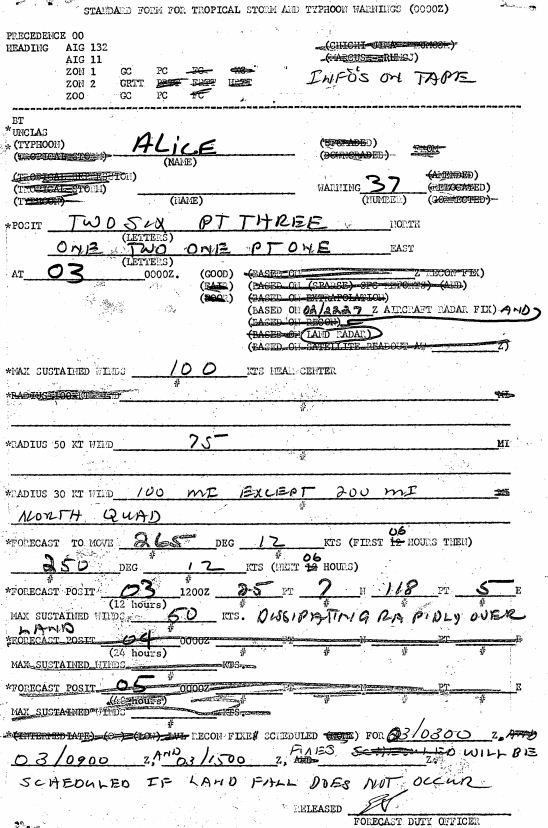 STANDARD FORM FOR TROPICAL STORM AND TYPHOON WARNINGS (0000Z)
PRECEDENCE OO
HEADING AIG 132
AIG 11
ZON 1 GC PC
ZON 2 GRTT
ZOO GC PC
INFO'S ON TAPE
BT
*UNCLAS
*(TYPHOON) ALICE (UPGRADED) FROM
(TROPICAL STORM) (NAME) (DOWNGRADED)
(TROPICAL DEPRESSION) (AMENDED)
(TROPICAL STORM) WARNING 37 (RELOCATED)
(TYPHOON) (NAME) (NUMBER) (CORRECTED)
*POSIT TWO SIX PT THREE NORTH
(LETTERS)
ONE TWO ONE PT ONE EAST
(LETTERS)
AT 03 0000Z. (GOOD) (BASED ON Z RECON FIX)
(FAIR) (BASED ON (SPARSE) SFC REPORTS) (AND)
(POOR) (BASED ON EXTRAPOLATION)
(BASED ON 02/2227 Z AIRCRAFT RADAR FIX) AND
(BASED ON RECON)
(BASED ON LAND RADAR)
(BASED ON SATELLITE READOUT AT Z)
*MAX SUSTAINED WINDS 100 KTS NEAR CENTER
#
*RADIUS 100 KT WIND MI
#
*RADIUS 50 KT WIND 75 MI
#
*RADIUS 30 KT WIND 100 MI EXCEPT 200 MI MI
#
NORTH QUAD
*FORECAST TO MOVE 265 DEG 12 KTS (FIRST 12 06 HOURS THEN)
# #
250 DEG 12 KTS (NEXT 12 06 HOURS)
# #
*FORECAST POSIT 03 1200Z 25 PT 7 N 118 PT 5 E
(12 hours) # # # #
MAX SUSTAINED WINDS 50 KTS. DISSIPATING RAPIDLY OVER
LAND #
*FORECAST POSIT 04 0000Z PT N PT E
(24 hours) # # # #
MAX SUSTAINED WINDS KTS.
#
*FORECAST POSIT 05 0000Z PT N PT E
(48 hours) # # # #
MAX SUSTAINED WINDS KTS
#
*(INTERMEDIATE) (OR) (LOW) LVL RECON FIXES SCHEDULED FOR 03/0300 Z, AND
03/0900 Z, AND 03/1500 Z, AND FIXES SCHEDULED WILL BE
Z.
SCHEDULED IF LAND FALL DOES NOT OCCUR
RELEASED
FORECAST DUTY OFFICER